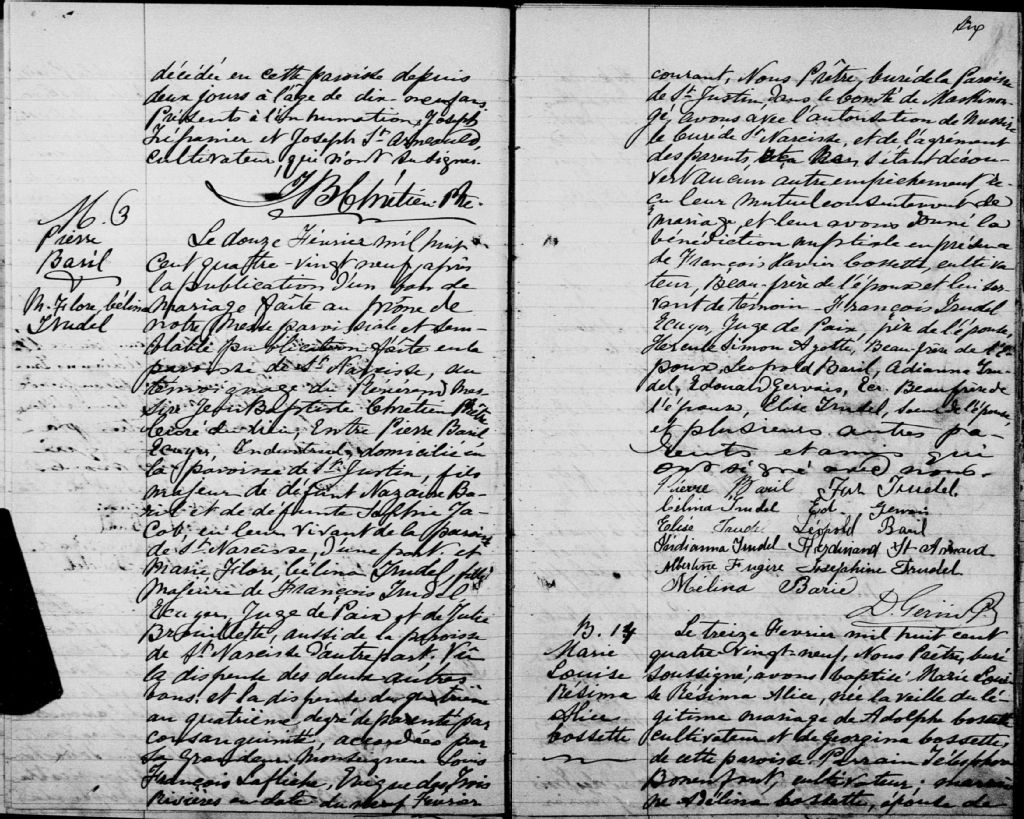 décédée en cette paroisse depuis
deux jours à l'age de dix-neuf ans.
Présents à l'inhumation, Joseph
Trépanier et Joseph St Arneauld,
cultivateur, qui n'ont su signer.
JB Chrétien Ptre.
M. 3
Pierre
Baril
&
M. Flore, Célina
Trudel
Le douze Février mil huit
cent quattre-vingt neuf, après
la publication d'un ban de
mariage faite au prône de
notre Messe paroissiale et sem-
blable publication faite en la
paroisse de St Narcisse, au
témoignage du Révérend Mes-
sire Jean Baptiste Chrétien Ptre
curé du lieu, Entre Pierre Baril
Ecuyer, Industriel, domicilié en
la paroisse de St Justin, fils
majeur de défunt Nazaire Ba-
ril et de défunte Sophie Ja-
cob, en leur vivant de la paroisse
de St Narcisse, d'une part et
Marie, Flore, Célina Trudel, fille
majeure de François Trudel
Ecuyer, Juge de Paix et de Julie
Brouillette, aussi de la paroisse
de St Narcisse d'autre part, Vû
la dispense des deux autres
bans et la dispense du quatrième
au quatrième degré de parenté par
consanguinité, accordées par
Sa Grandeur Monseigneur Louis
François Lafleche, Evêque des Trois
Rivières en date du neuf Février
courant, Nous Prêtre, Curé de la Paroisse
de St Justin, dans le Comté de Maskinon-
gé, avons avec l'autorisation de Messire
le Curé de St Narcisse, et de l'agrément
des parents, s'étant décou-
vert aucun autre empêchement, re-
çu leur mutuel consentement de
mariage, et leur avons donné la
bénédiction nuptiale en présence
de François Xavier Cossette, cultiva-
teur, Beau-frère de l'époux et lui ser-
vant de témoin - François Trudel
Ecuyer, Juge de Paix père de l'épouse,
Simon Ayotte, Beau frère de l'é-
poux, Léopold Baril, Adianna Tru-
del, Edouard Gervais, Ecr. Beau frère de
l'époux, Elise Trudel, soeur de l'épouse,
et plusieurs autres pa-
rents et amis qui
ont signé avec nous.
Pierre Baril Frs Trudel
Célina Trudel Ed. Gervais
Elise Trudel Léopold Baril
Andianna Trudel Ferdinand St-Arnaud
Albertine Fugère Joséphine Trudel
Mélina Baril
D. Gerin P
B. 14
Marie
Louise
Résima
Alice
Cossette
Le treize Fevrier mil huit cent
quatre Vingt-neuf, Nous Prêtre, Curé
soussigné, avons baptisé Marie Loui-
se Résima Alice, née la veille du lé-
gitime mariage de Adolphe Cossette
cultivateur et de Georgina Cossette,
de cette paroisse. Parrain Télésphore
Bonenfant, cultivateur; marrai-
ne Adélina Cossette, épouse de